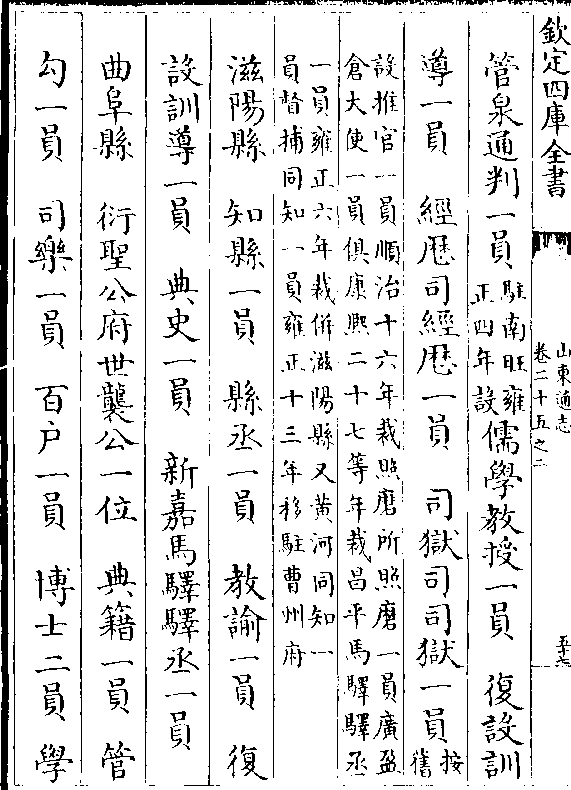 欽定四庫全書
山東通志
卷二十五之二
管泉通判一員駐南旺雍正四年設儒學教授一員　復設訓
導一員　經歷司經歷一員　司獄司司獄一員按舊
設推官一員順治十六年裁照磨所照磨一員廣盈
倉大使一員俱康熙二十七等年裁昌平馬驛驛丞
一員雍正六年裁併滋陽縣又黃河同知一
員督捕同知一員雍正十三年移駐曹州府
滋陽縣　知縣一員　縣丞一員　教諭一員　復
設訓導一員　典史一員　新嘉馬驛驛丞一員
曲阜縣　衍聖公府世襲公一位　典籍一員　管
勾一員　司樂一員　百户一員　博士二員　學